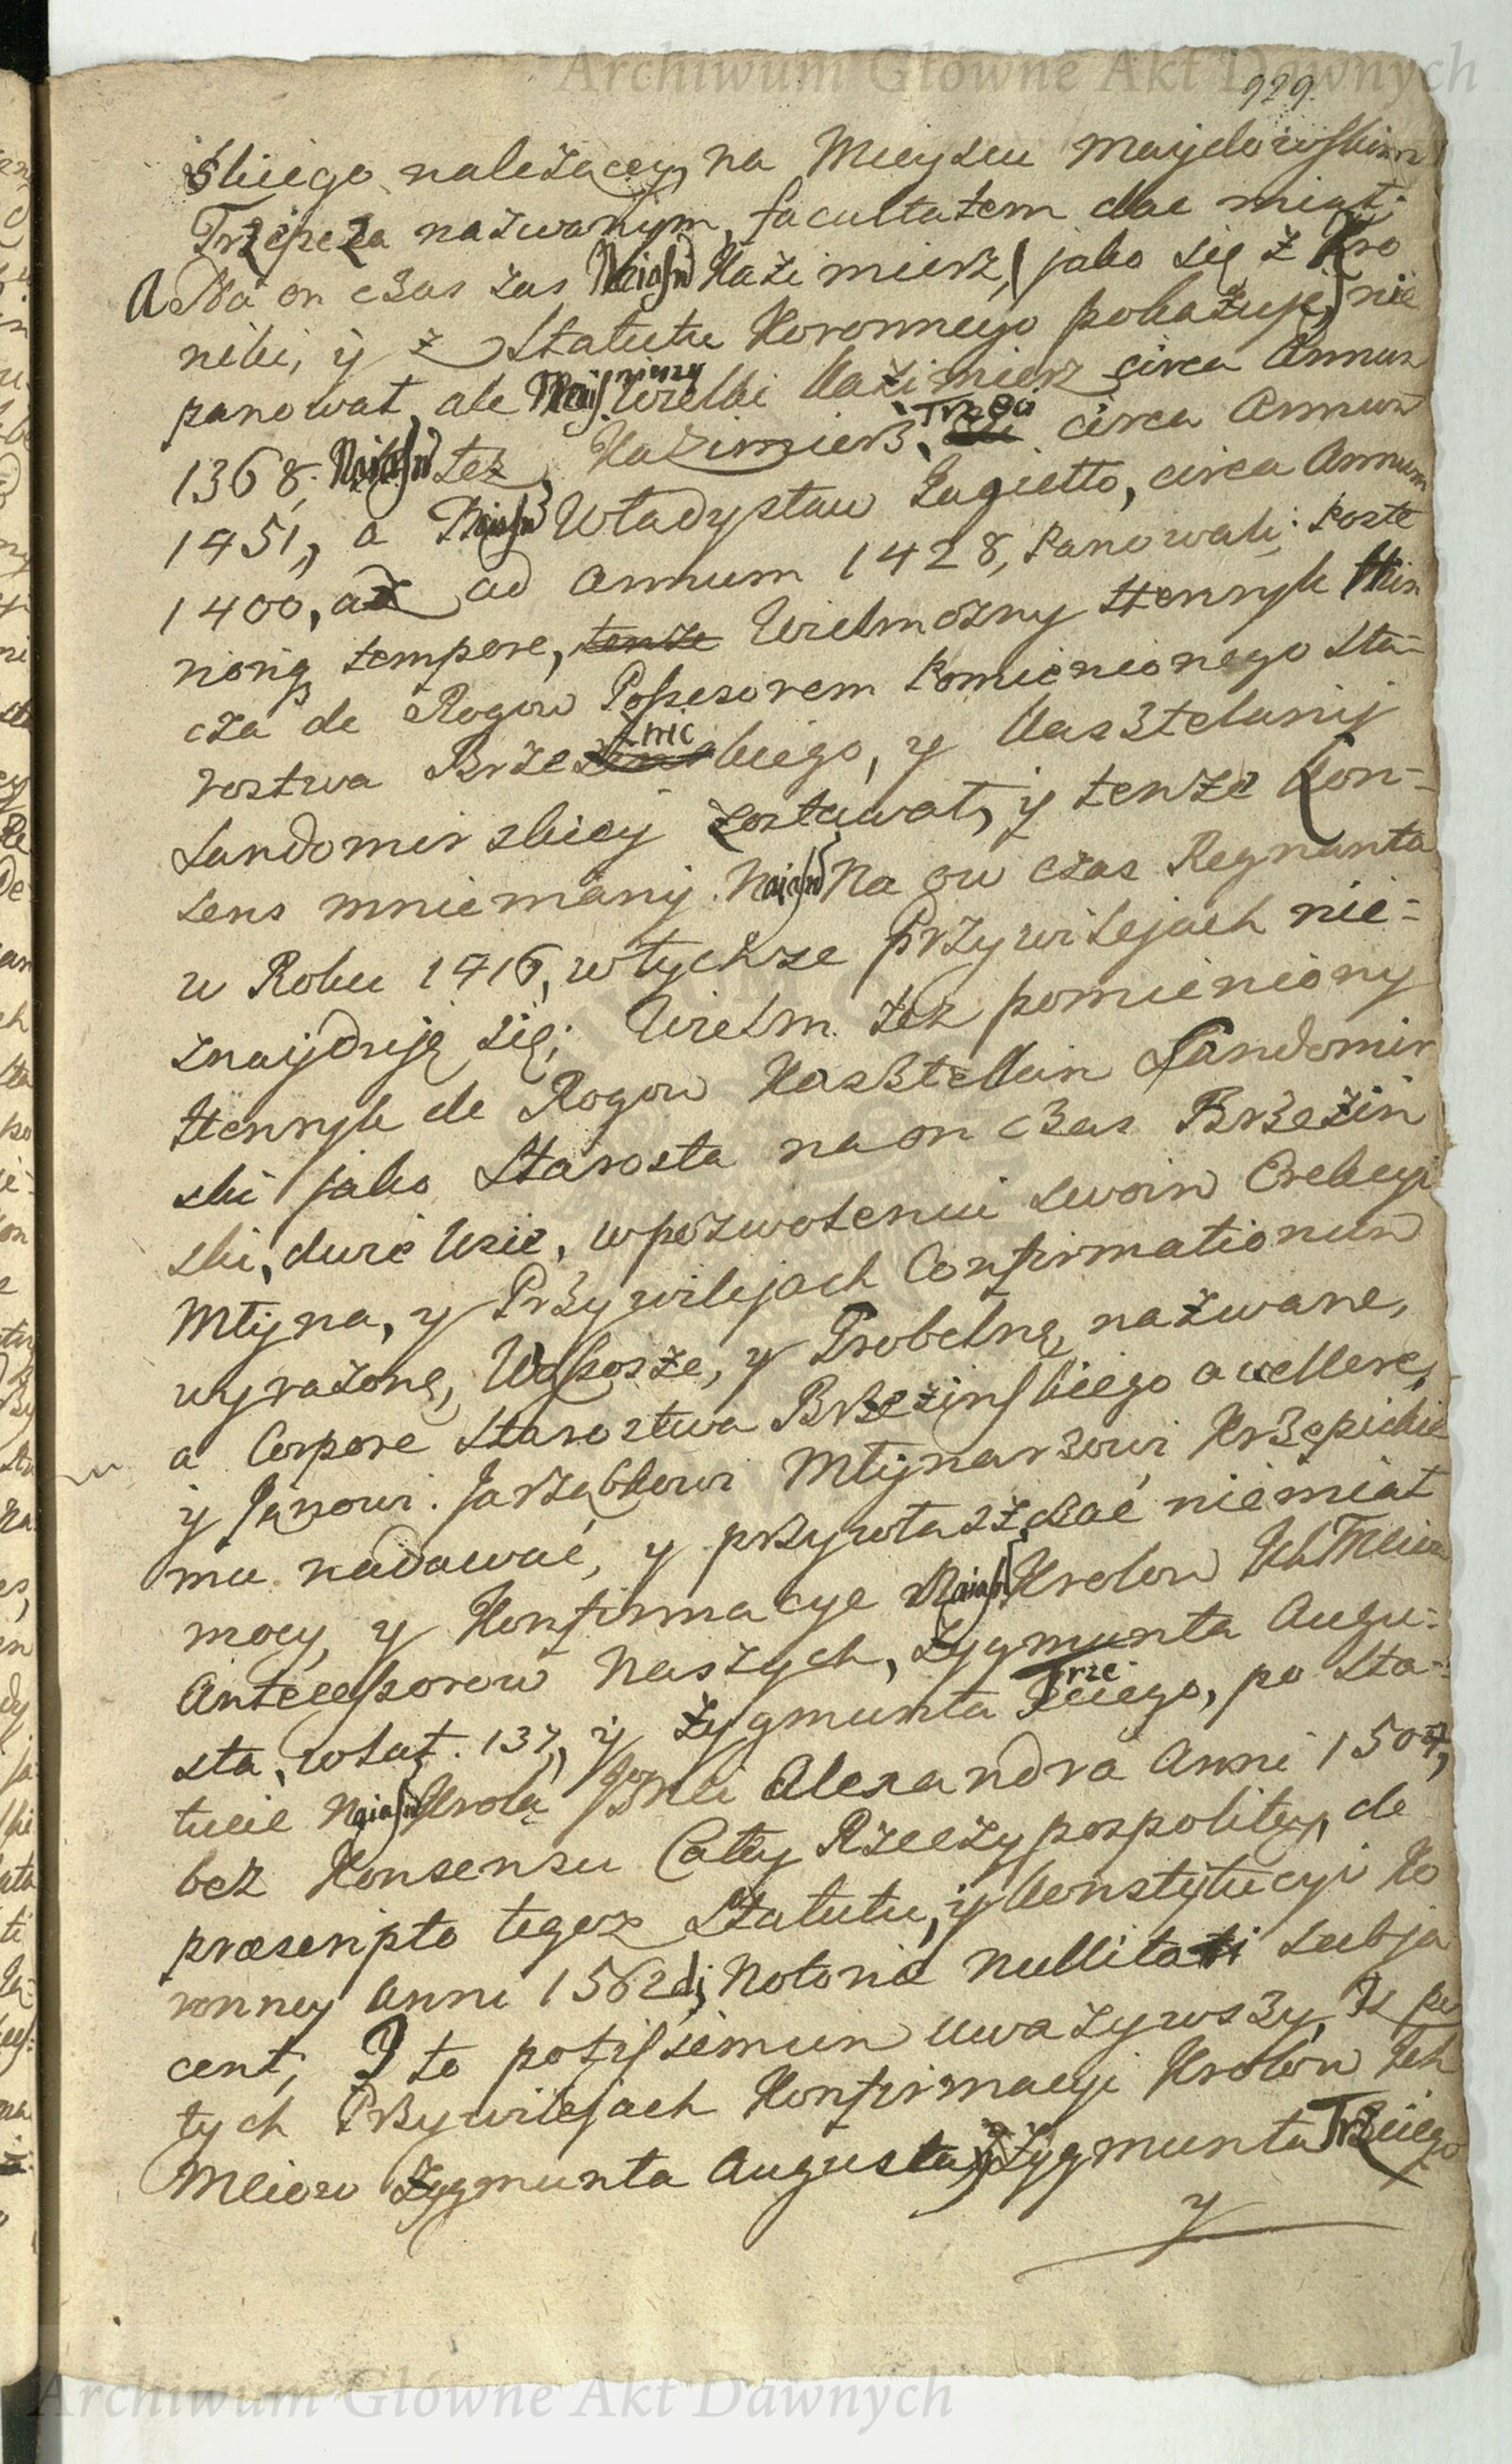 Archiwum Główne Akt Dawnych
929.
skiego należącey, na Mieyscu Maydowskim
Trzepeza nazwanym, facultatem dae miał;
A Na on czas zas Naiasn Kazimierz, (jako się z Kro
niki, y z Statutu Koronnego pokazuje,) nie
panował, ale Naijasnieyszy Wielki Kazimierz circa Annum
1368; Naiasn też, Kazimierz, Trzeci circa Annum
1451, a Naiasn Władysław Jagiełło, circa Annum
1400, aż ad Annum 1428, panowali; Poste
riorię tempore, tenże Wielmożny Henryk Hin
cza de Rogow Possesorem pomienionego Sta-
rostwa Brzeznickiego, y Kasztelanij
Sandomirskiey zostawał, y tenże Kon-
sens mniemany Naiasn Na ow czas Regnanta
w Roku 1416, wtychże Przywilejach nie-
znayduję się; Wielm też pomieniony
Henryk de Rogow Kasztellan Sandomir
ski jako Starosta naon czas Brzezin
ski, dwie Wsie, wpozwoleniu swoin Erekcyi
Młyna, y Przywilejach Confirmationum
wyrażonę, Wąsosze, y Probelnę nazwane,
a Corpore Starostwa Brzezinskiego avellere,
y Janowi Jarząbkowi Młynarzowi Krzepickie
mu nadawać, y przywłaszczać niemiał
mocy, y Konfirmacye Naiasn Krolow Ich Mciow
Antecessorow Naszych, Zygmunta Augu-
sta, wtat. 137, y Zygmunta Trzeciego, po Sta-
tucie Naiasn Krola Jgo Mci Alexandra Anni 1504,
bez Konsensu Całey Rzeczypospolitey, de
præscripto tegoż Statutu, y Konstytucyi Ko
ronney Anni 1562di, Notoriæ Nullitati subja
cent; I to potissimum uważywszy, Iz po
tych Przywilejach Konfirmacyi Krolow Ich
Mciow Zygmunta Augusta, y Zygmunta Trzeciego
y
Archiwum Główne Akt Dawnych